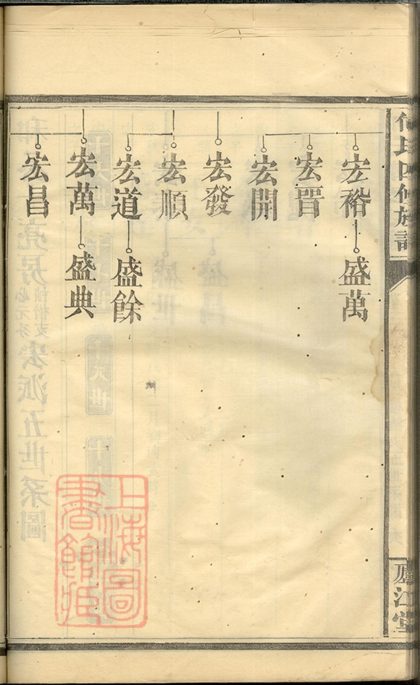 何氏四修族譜
廬江堂
宏裕 盛萬
宏晋
宏開
宏發
宏順
宏道 盛餘
宏萬 盛典
宏昌
上海圖
書館藏